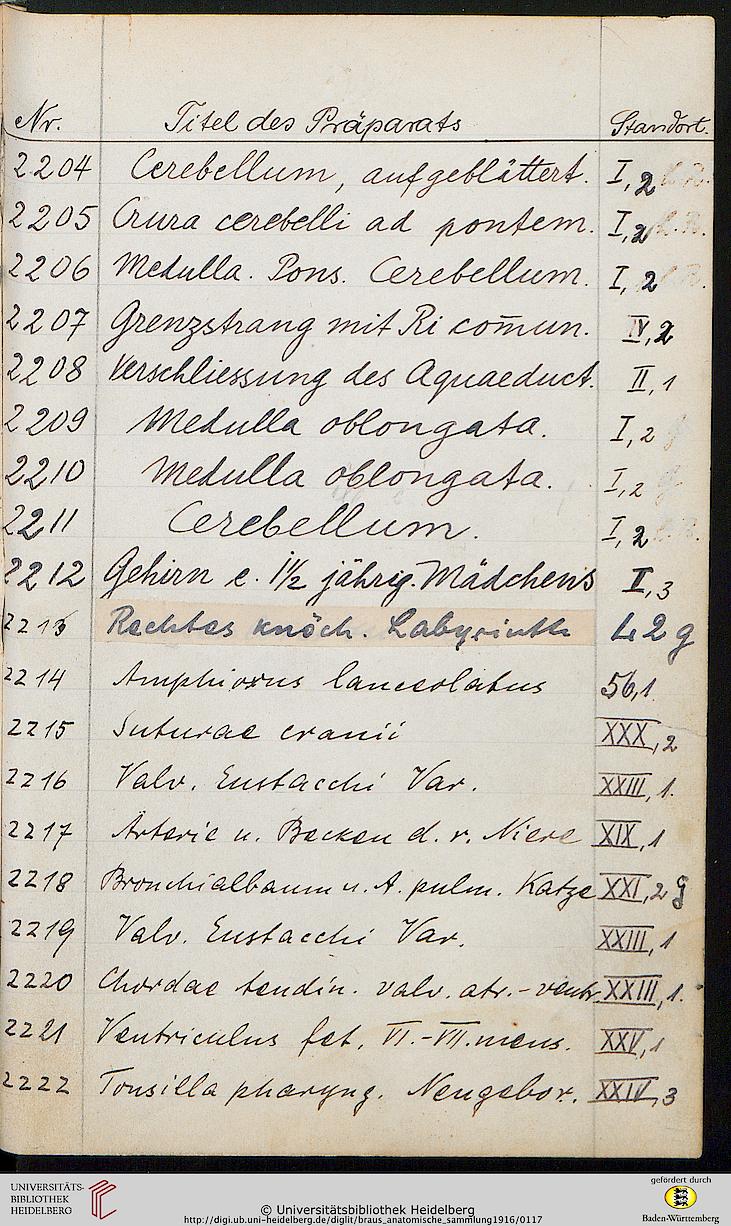 Nr. Titel des Präparats Standort.
2204 Cerebellum, aufgeblättert. I, 2
2205 Crura cerebelli ad pontem. I, 2 L.R.
2206 Medulla. Pons. Cerebellum. I, 2
2207 Grenzstrang mit Ri com̄un. IV, 2
2208 Verschliessung des Aquaeduct. II, 1
2209 Medulla oblongata. I, 2
2210 Medulla oblongata. I, 2
2211 Cerebellum. I, 2
2212 Gehirn e. 1½ jährig. Mädchens I, 3
2213 Rechtes knöch. Labyrinth L 2 g
2214 Amphioxus lanceolatus 56, 1.
2215 Suturae cranii XXX, 2
2216 Valv. Eustacchi Var. XXIII, 1.
2217 Arterie u. Becken d. r. Niere XIX, 1
2218 Bronchialbaum u. A. pulm. Katze XXI, 2 g
2219 Valv. Eustacchi Var. XXIII, 1
2220 Chordae tendin. valv. atr.-ventr. XXIII, 1.
2221 Ventriculus fet. VI.-VII. mens. XXV, 1
2222 Tonsilla pharyng. Neugebor. XXIV, 3
UNIVERSITÄTS-
BIBLIOTHEK
HEIDELBERG
© Universitätsbibliothek Heidelberg
http://digi.ub.uni-heidelberg.de/diglit/braus_anatomische_sammlung1916/0117
gefördert durch
Baden-Württemberg